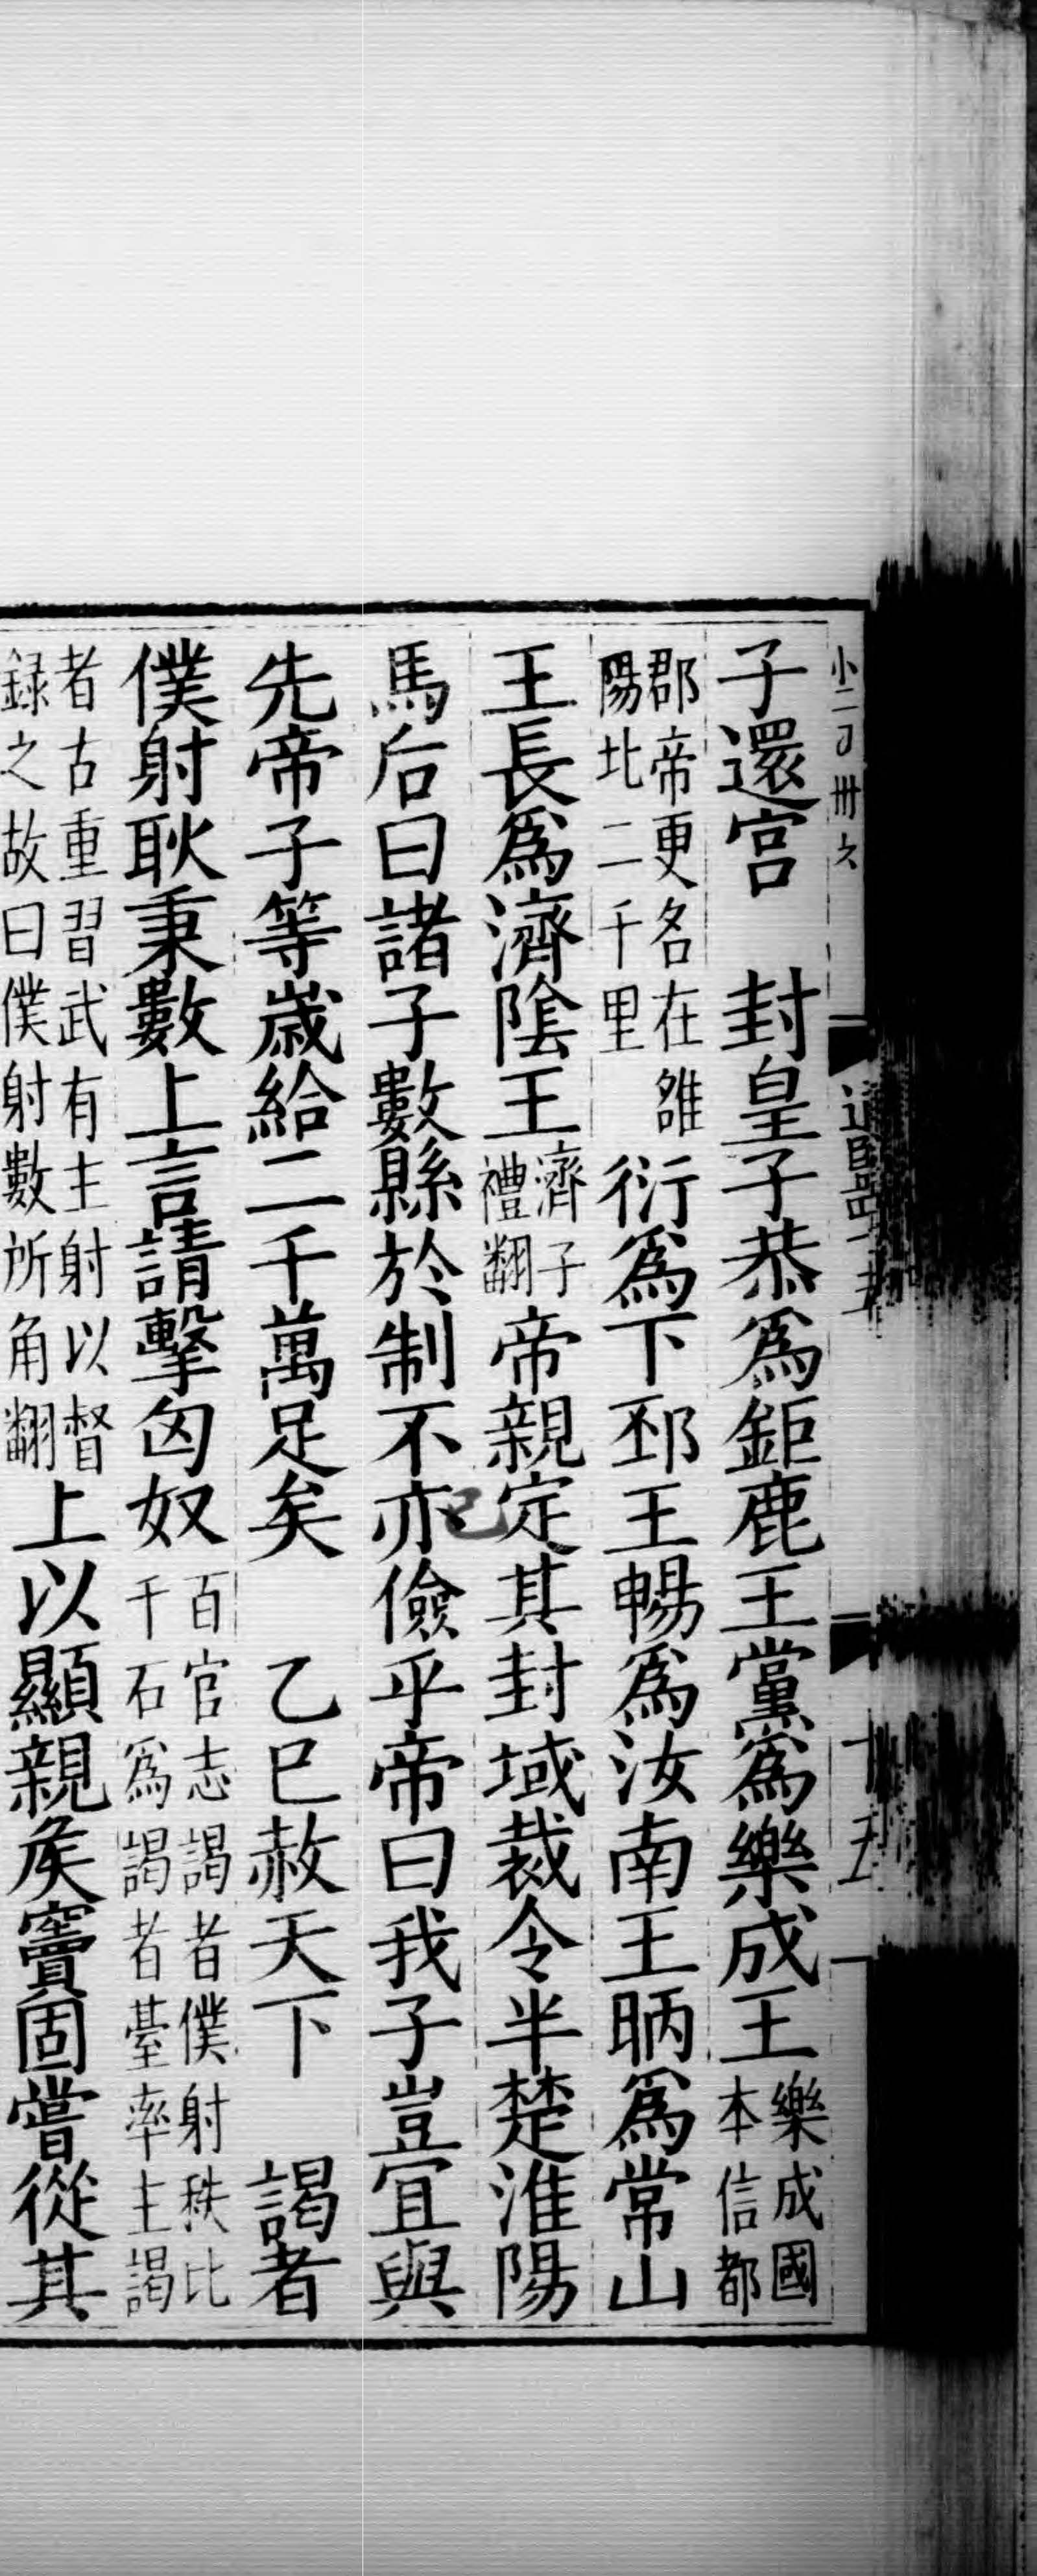 子還宮　封皇子恭爲鉅鹿王黨爲樂成王樂成國本信都
郡帝更名在雒陽北二千里衍爲下邳王暢爲汝南王昞爲常山
王長爲濟陰王濟子禮翻帝親定其封域裁令半楚淮陽
馬后曰諸子數縣於制不亦儉乎帝曰我子豈宜與
先帝子等歲給二千萬足矣　乙巳赦天下　謁者
僕射耿秉數上言請擊匈奴百官志謁者僕射秩比千石爲謁者臺率主謁
者古重習武有主射以督録之故曰僕射數所角翻上以顯親矦竇固嘗從其